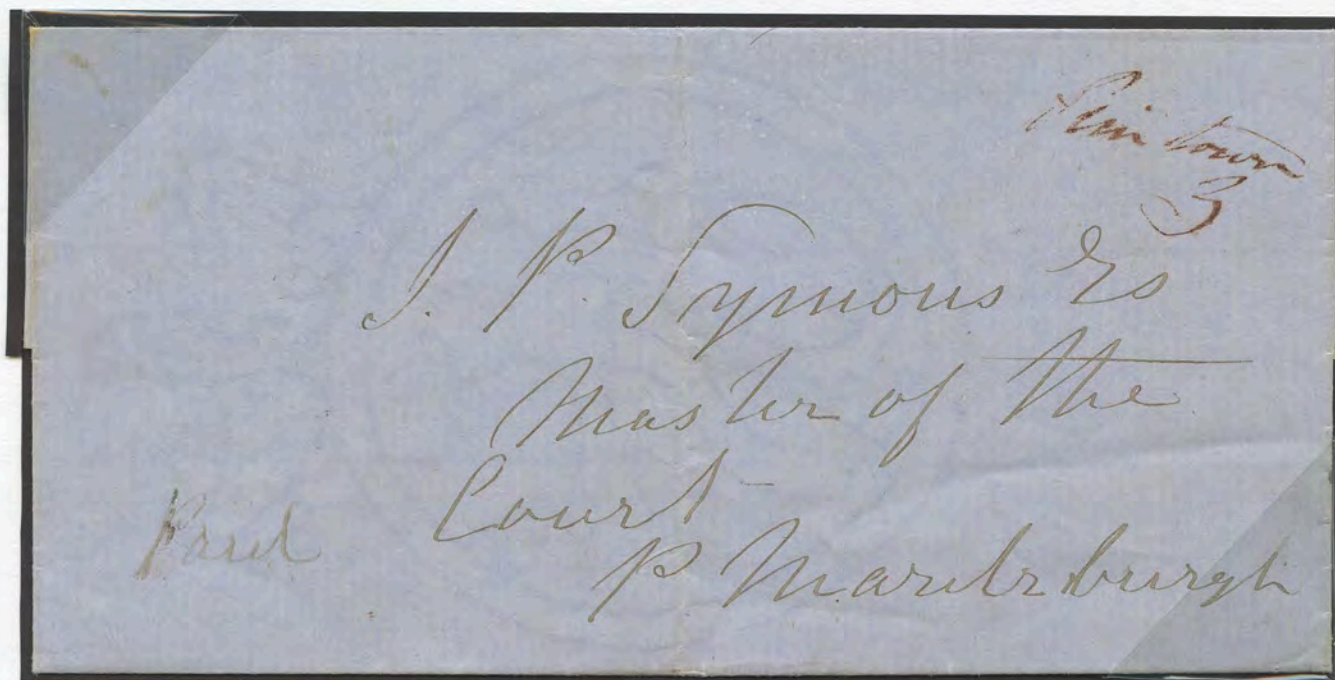 Pine town
3
J. P. Symons Es
Master of the
Court
P Maritzburgh
Paid